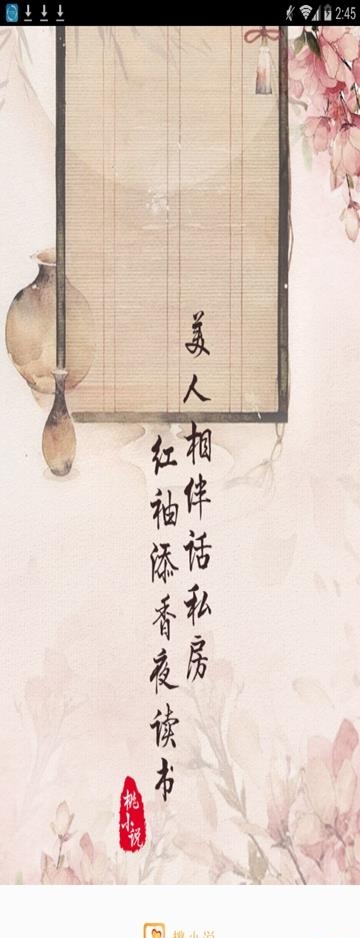 2:45
美人相伴话私房
红袖添香夜读书
桃小说
桃小说